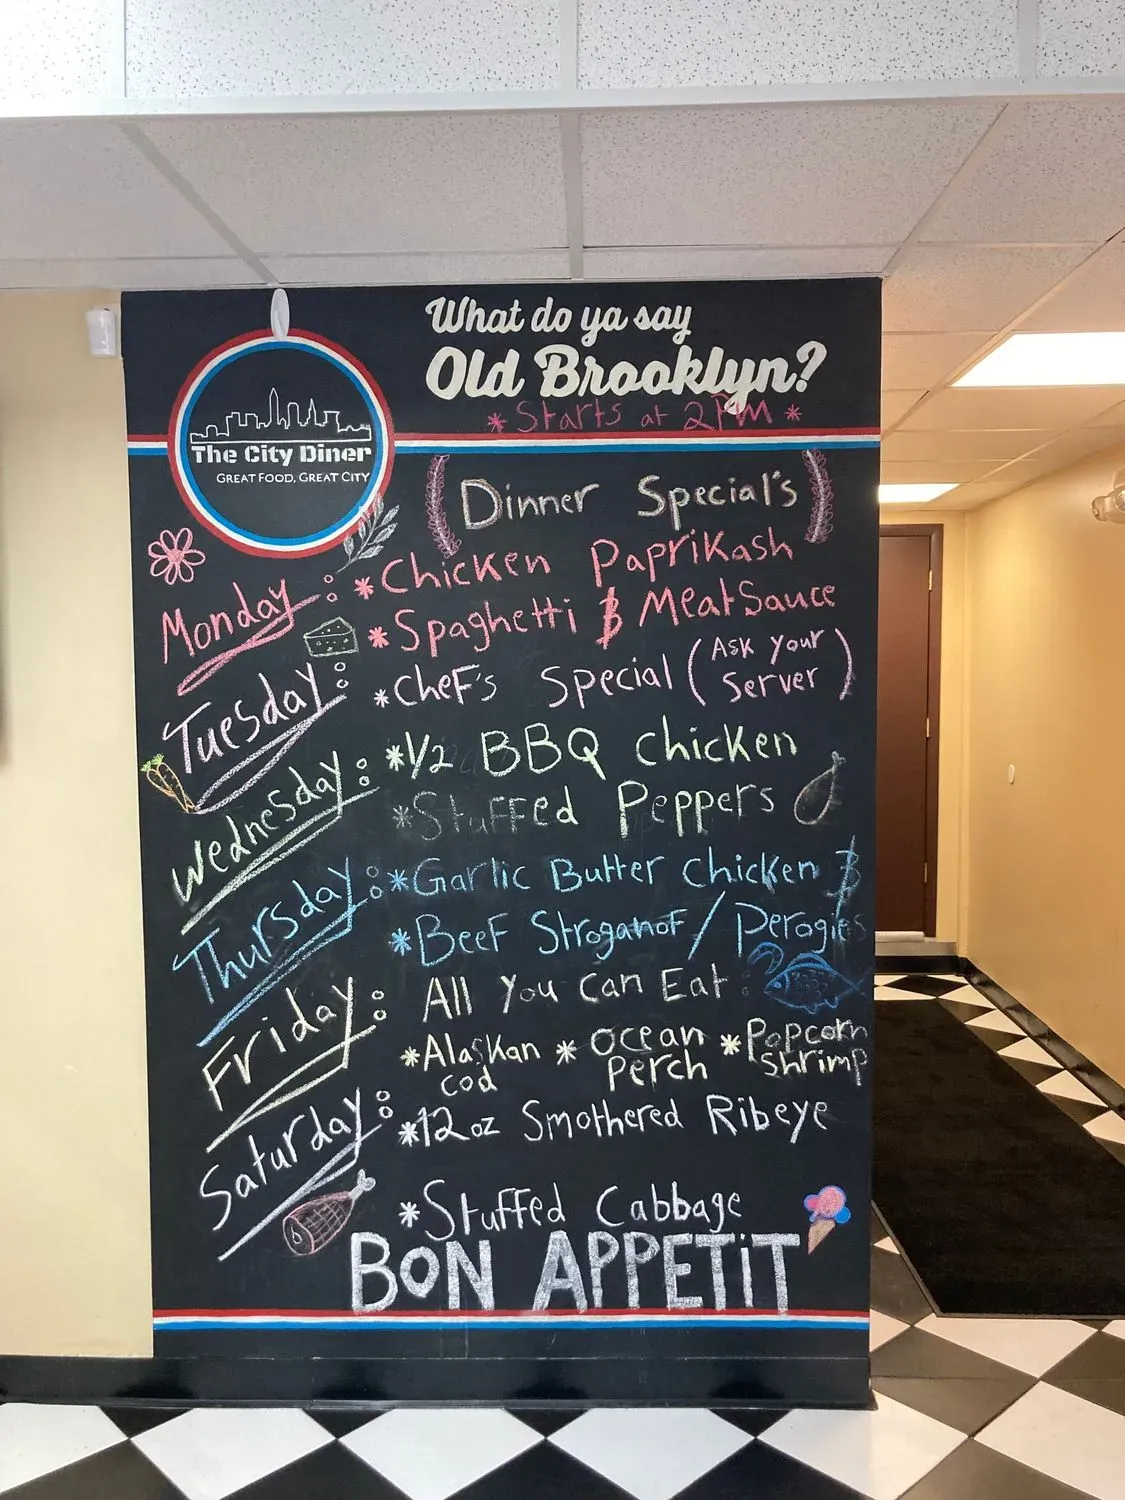 What do ya say
Old Brooklyn?
* Starts at 2PM *
The City Diner
GREAT FOOD, GREAT CITY
Dinner Special's
Monday: *Chicken Paprikash
*Spaghetti & MeatSauce
Tuesday: *Chef's Special (Ask Your Server)
Wednesday: *1/2 BBQ Chicken
*Stuffed Peppers
Thursday: *Garlic Butter Chicken
*Beef Stroganof / Perogies
Friday: All You Can Eat:
*Alaskan cod * Ocean Perch *Popcorn shrimp
Saturday: *12oz Smothered Ribeye
*Stuffed Cabbage
BON APPETiT